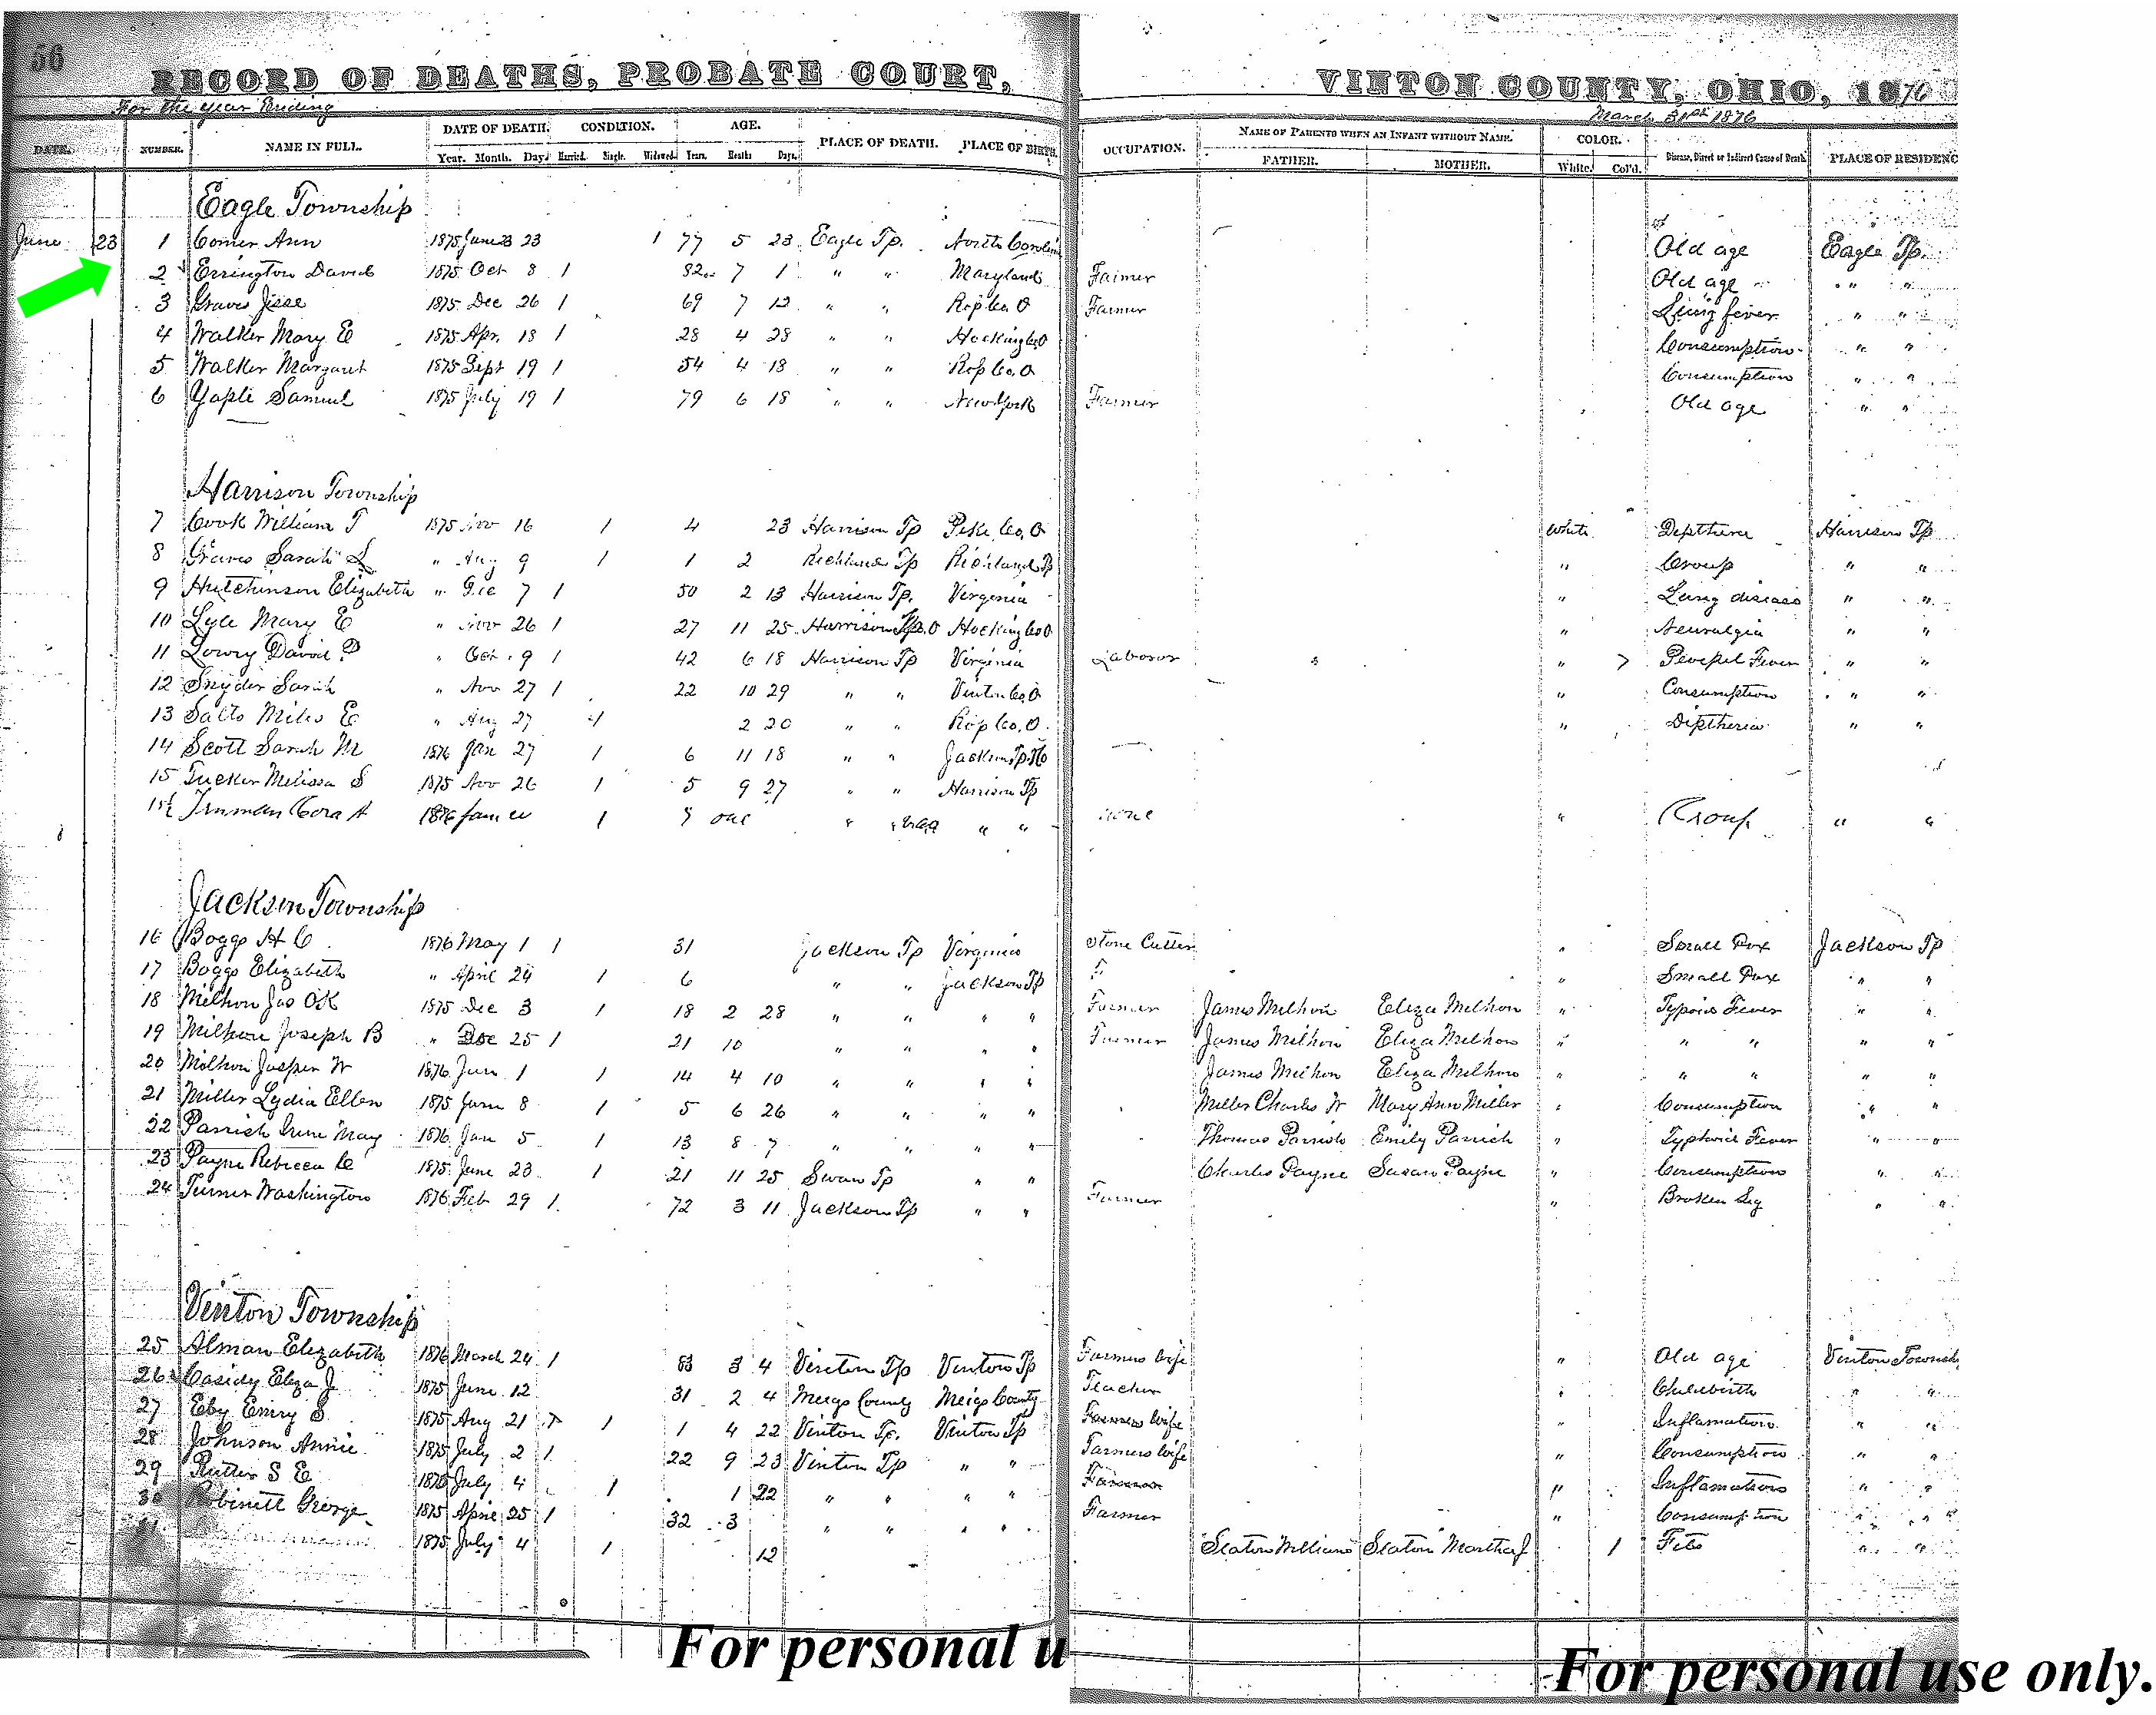 56
RECORD OF DEATHS, PROBATE COURT, VINTON COUNTY, OHIO, 1876
For the year Ending March 31st 1876
DATE. NUMBER. NAME IN FULL. DATE OF DEATH. CONDITION. AGE. PLACE OF DEATH. PLACE OF BIRTH. OCCUPATION. NAME OF PARENTS WHEN AN INFANT WITHOUT NAME. COLOR. Disease, Direct or Indirect Cause of Death. PLACE OF RESIDENC
Year. Month. Day. Married. Single. Widowed. Years. Months Days. FATHER. MOTHER. White. Col'd.
Eagle Township
June 23 1 Comer Ann 1875 June 23 23 1 77 5 23 Eagle Tp. North Carolina Old age Eagle Tp.
2 Errington David 1875 Oct 8 1 82 7 1 " " Maryland Farmer Old age " "
3 Graves Jesse 1875 Dec 26 1 69 7 12 " " Ross Co. O Farmer Lung fever " "
4 Walker Mary E 1875 Apr. 18 1 28 4 28 " " Hocking Co O Consumption " "
5 Walker Margaret 1875 Sept 19 1 54 4 18 " " Ross Co. O Consumption " "
6 Yaple Samuel 1875 July 19 1 79 6 18 " " New York Farmer Old age " "
Harrison Township
7 Cook William T 1875 Nov 16 1 4 23 Harrison Tp Pike Co, O White Deptherea Harrison Tp
8 Graves Sarah L " Aug 9 1 1 2 Richland Tp Richland Tp " Croup " "
9 Hutchinson Elizabeth " Dec 7 1 50 2 13 Harrison Tp. Virginia " Lung disease " "
10 Lyle Mary E " Nov 26 1 27 11 25 Harrison Tp. O Hocking Co O " Neuralgia " "
11 Lowry David P " Oct. 9 1 42 6 18 Harrison Tp Virginia Laborer " Fever " "
12 Snyder Sarah " Nov 27 1 22 10 29 " " Vinton Co, O " Consumption " "
13 Salts Miles E " Aug 27 1 2 20 " " Ross Co, O. " Diptheria " "
14 Scott Sarah M 1876 Jan 27 1 6 11 18 " " Jackson Tp.
15 Tucker Melissa S 1875 Nov 26 1 5 9 27 " " Harrison Tp
15½ Truman Cora A 1876 Jan 1 one " " " " none " Croup " "
Jackson Township
16 Boggs H C 1876 May 1 1 31 Jackson Tp Virginia Stone Cutter " Small Pox Jackson Tp
17 Boggs Elizabeth " April 24 1 6 " " Jackson Tp " Small Pox " "
18 Milhon Jas OK 1875 Dec 3 1 18 2 28 " " " " Farmer James Milhon Eliza Milhon " Typoid Fever " "
19 Milhon Joseph B " Dec 25 1 21 10 " " " " Farmer James Milhon Eliza Milhon " " " " "
20 Milhon Jasper W 1876 Jan 1 1 14 4 10 " " " " James Milhon Eliza Milhon " " " " "
21 Miller Lydia Ellen 1875 June 8 1 5 6 26 " " " " Miller Charles W Mary Ann Miller " Consumption " "
22 Parrish Irene May 1876 Jan 5 1 13 8 7 " " " " Thomas Parrish Emily Parrish " Typhoid Fever " "
23 Payne Rebecca 1875 June 23 1 21 11 25 Swan Tp " " Charles Payne Susan Payne " Consumption " "
24 Turner Washington 1876 Feb 29 1 72 3 11 Jackson Tp " " Farmer " Broken Leg " "
Vinton Township
25 Alman Elizabeth 1876 March 24 1 83 3 4 Vinton Tp Vinton Tp Farmers Wife " Old age Vinton Townsh
26 Casidy Eliza J 1875 June 12 31 2 4 Meigs County Meigs County Teacher " Childbirth " "
27 Eby Emry S 1875 Aug 21 1 1 4 22 Vinton Tp. Vinton Tp Farmers Wife " Inflamation " "
28 Johnson Annie 1875 July 2 1 22 9 23 Vinton Tp " " Farmers Wife " Consumption " "
29 Rutter S E 1875 July 4 1 1 22 " " " " " Inflamation " "
30 Robinett George 1875 April 25 1 32 3 " " " " Farmer " Consumption " "
31 1875 July 4 1 12 Seaton William Seaton Martha J 1 Fits " "
For personal u
For personal use only.